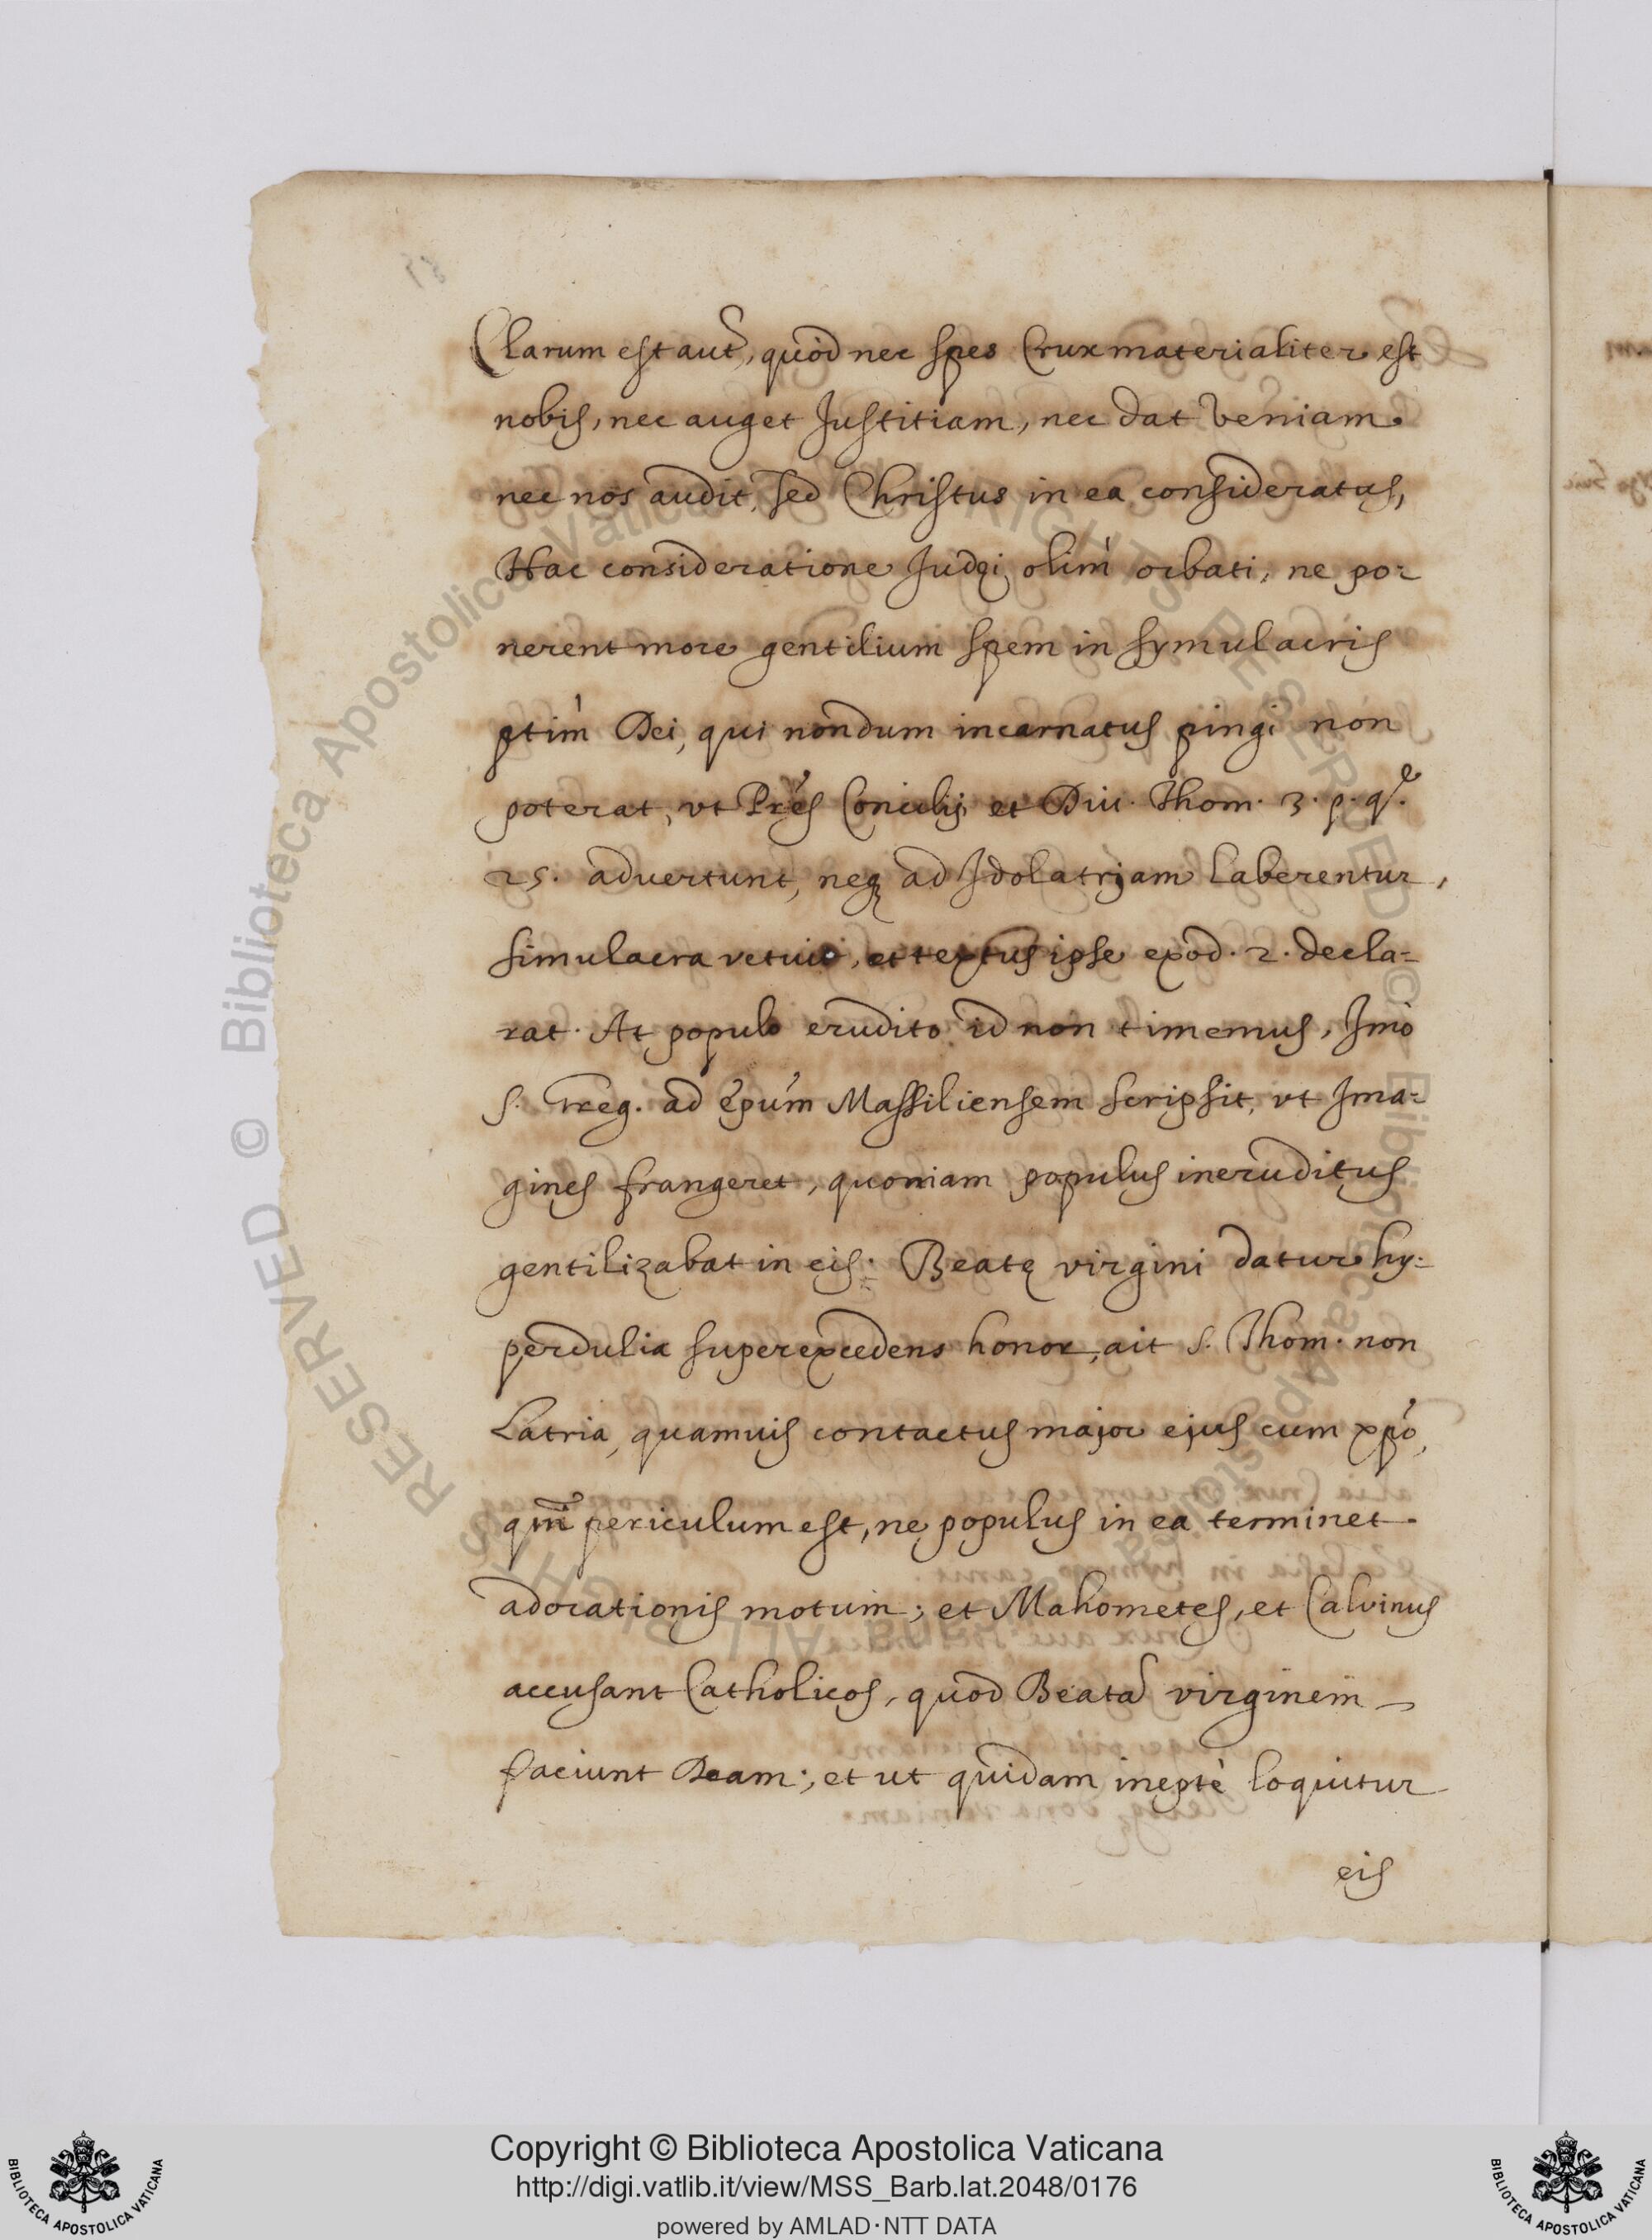 Clarum est aut, quòd nec spes Crux materialiter est
nobis, nec auget Justitiam, nec dat veniam.
nec nos audit, sed Christus in ea consideratus,
Hac consideratione Judęi olim orbati, ne po-
nerent more gentilium spem in symulacris
ptim Dei, qui nondum incarnatus pingi non
poterat, vt Pres Concilij et Diu. Thom. 3. p. q.
25. advertunt, neq ad Idolatriam laberentur,
simulacra vetuit, et textus ipse exod. 2. decla-
rat. At populo erudito id non timemus, Imò
S. Greg. ad epum Massiliensem scripsit, vt Ima-
gines frangeret, quoniam populus ineruditus
gentilizabat in eis. Beatę virgini datur hy-
perdulia superexcedens honor, ait S. Thom. non
Latria, quamuis contactus major ejus cum xpo,
qm periculum est, ne populus in ea terminet
adorationis motum; et Mahometes, et Calvinus
accusant Catholicos, quod Beata virginem
faciunt Deam; et ut quidam ineptè loquitur
eis
Copyright © Biblioteca Apostolica Vaticana
http://digi.vatlib.it/view/MSS_Barb.lat.2048/0176
powered by AMLAD·NTT DATA
BIBLIOTECA APOSTOLICA VATICANA
BIBLIOTECA APOSTOLICA VATICANA